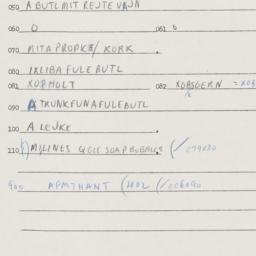 050 A BUTLMIT REJTE VAJA
060 0 061 0
070 MITA PROPKE/ KORK .
080 IXLIBA FULE BUTL
081 XOPMOLT 082 XOBSGERN = XOB
090 A TRUNKFUNAFULEBUTL
100 A LEUKE .
110 MYLINES UGLE SOAP BUBBLES (/079080
900 APMTHANT (HOL (/006090